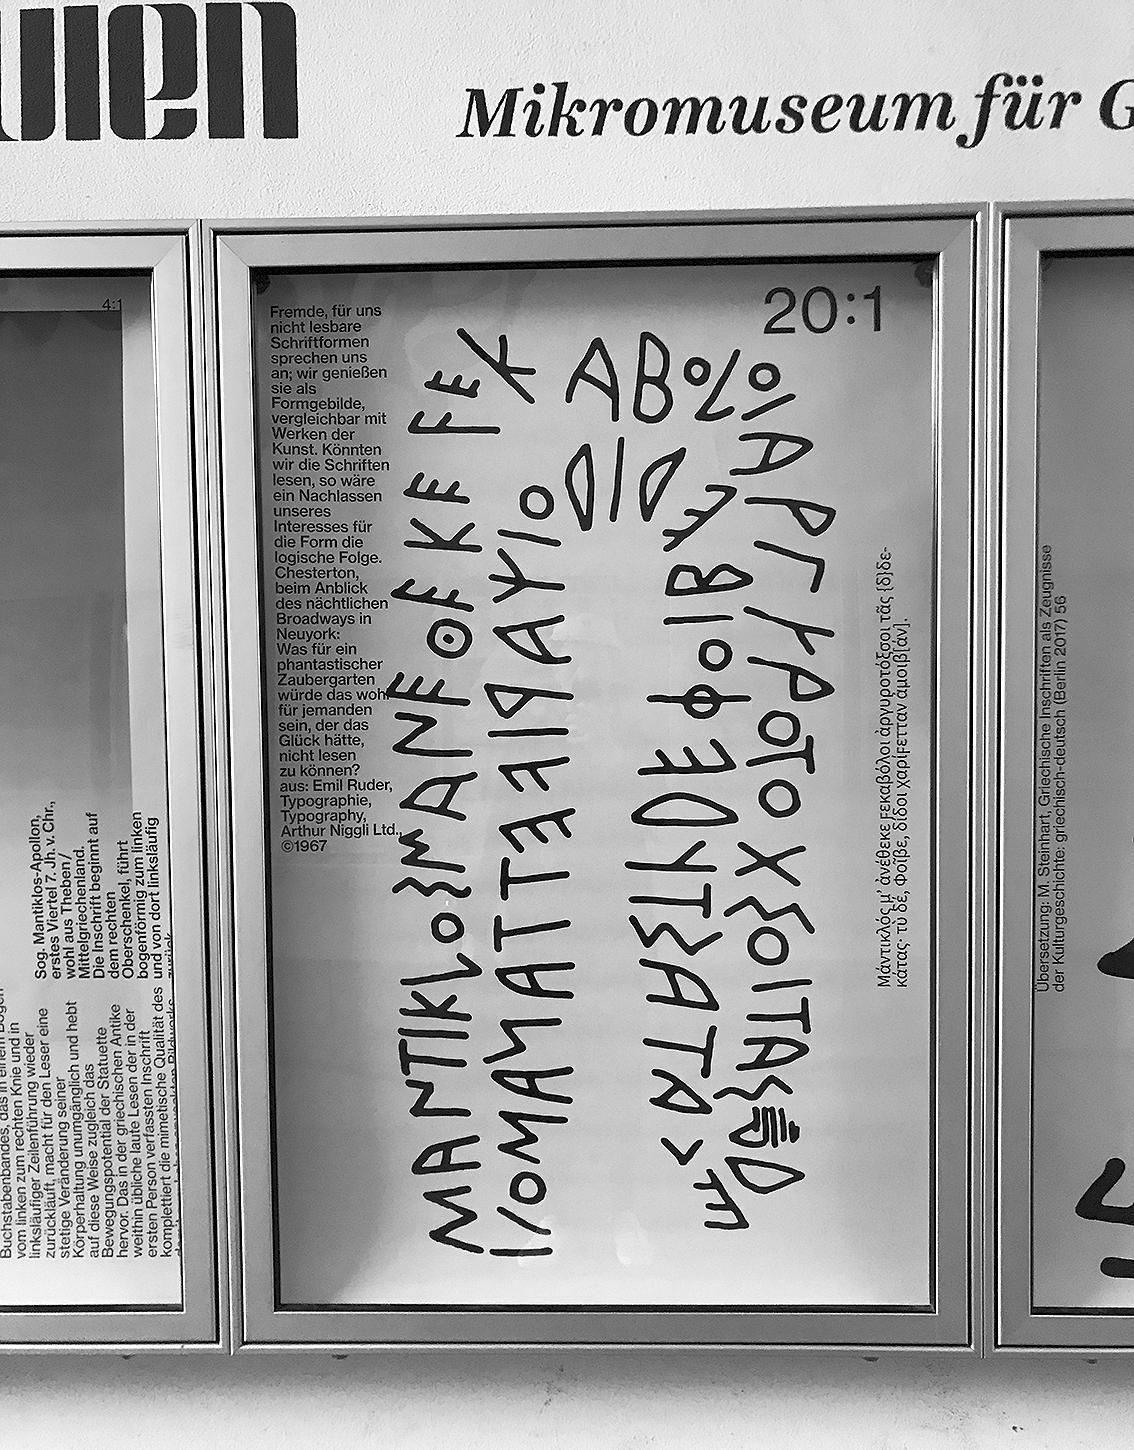 uien
Mikromuseum für G
4:1
Sog. Mantiklos-Apollon,
erstes Viertel 7. Jh. v. Chr.,
wohl aus Theben/
Mittelgriechenland.
Die Inschrift beginnt auf
dem rechten
Oberschenkel, führt
bogenförmig zum linken
und von dort linksläufig
zurück.
Buchstabenbandes, das in einem Bogen
vom linken zum rechten Knie und in
linksläufiger Zeilenführung wieder
zurückläuft, macht für den Leser eine
stetige Veränderung seiner
Körperhaltung unumgänglich und hebt
auf diese Weise zugleich das
Bewegungspotential der Statuette
hervor. Das in der griechischen Antike
weithin übliche laute Lesen der in der
ersten Person verfassten Inschrift
komplettiert die mimetische Qualität des
Fremde, für uns
nicht lesbare
Schriftformen
sprechen uns
an; wir genießen
sie als
Formgebilde,
vergleichbar mit
Werken der
Kunst. Könnten
wir die Schriften
lesen, so wäre
ein Nachlassen
unseres
Interesses für
die Form die
logische Folge.
Chesterton,
beim Anblick
des nächtlichen
Broadways in
Neuyork:
Was für ein
phantastischer
Zaubergarten
würde das wohl
für jemanden
sein, der das
Glück hätte,
nicht lesen
zu können?
aus: Emil Ruder,
Typographie,
Typography,
Arthur Niggli Ltd.,
©1967
20:1
Μάντικλός μ' ἀνέθεκε ϝεκαβόλοι ἀργυροτόξσοι τᾶς {δ}δε-
κάτας· τὺ δέ, Φοῖβε, δίδοι χαρίϝετταν ἀμοιβ[άν].
Übersetzung: M. Steinhart, Griechische Inschriften als Zeugnisse
der Kulturgeschichte: griechisch-deutsch (Berlin 2017) 56